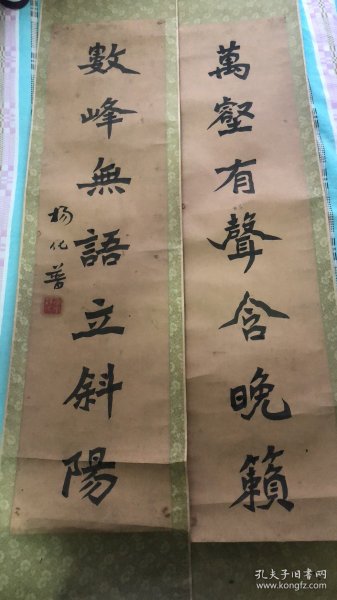 萬壑有聲含晚籟
數峰無語立斜陽
楊化普
孔夫子旧书网